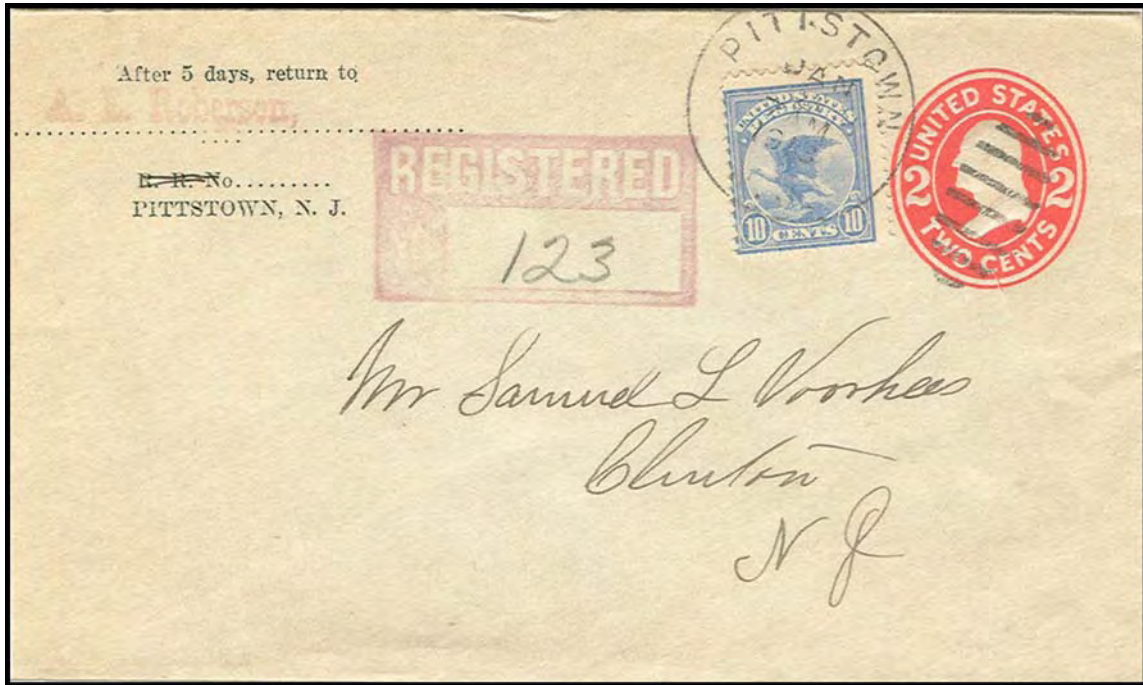 After 5 days, return to
A. E. Roberson,
R. R. No.........
PITTSTOWN, N. J.
REGISTERED
123
PITTSTOWN
JAN
AM
UNITED STATES
REGISTRY
10 CENTS 10
UNITED STATES
2 2
TWO CENTS
Mr Samuel L Voorhees
Clinton
N J